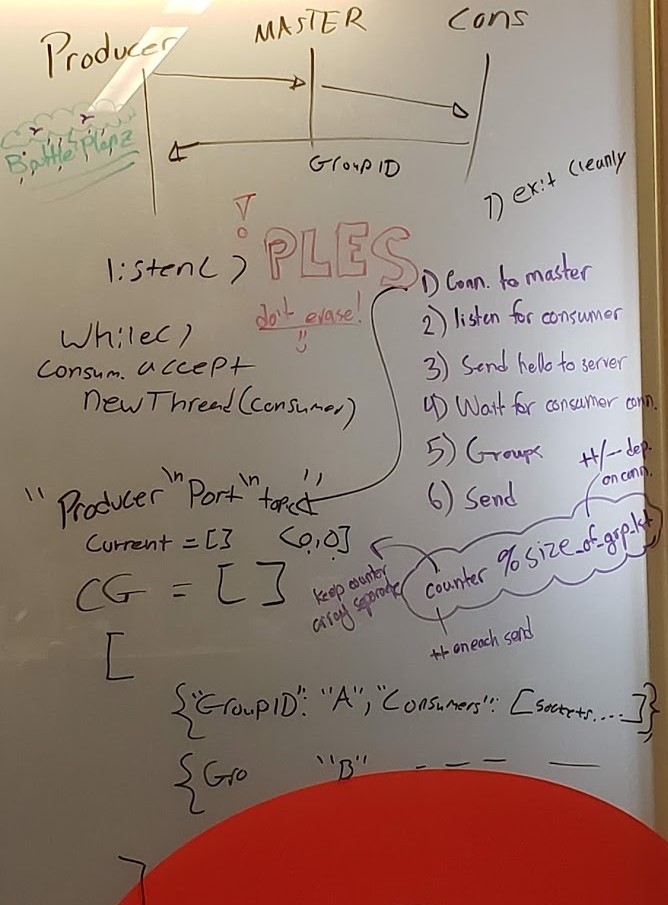 Producer MASTER Cons
Battle Planz
GroupID
7) exit cleanly
! PLES
don't erase!
listen( )
while( )
consum. accept
newThread(consumer)
1) Conn. to master
2) listen for consumer
3) Send hello to server
4) Wait for consumer conn.
5) Groups
6) Send
++/-- dep.
on conn.
"Producer \n Port \n topic"
Current = [] [0,0]
counter % size_of_grp.lst
keep counter
array separate
++ on each send
CG = []
[
{"GroupID": "A", "Consumers": [sockets....]},
{Gro "B" - - - —
]